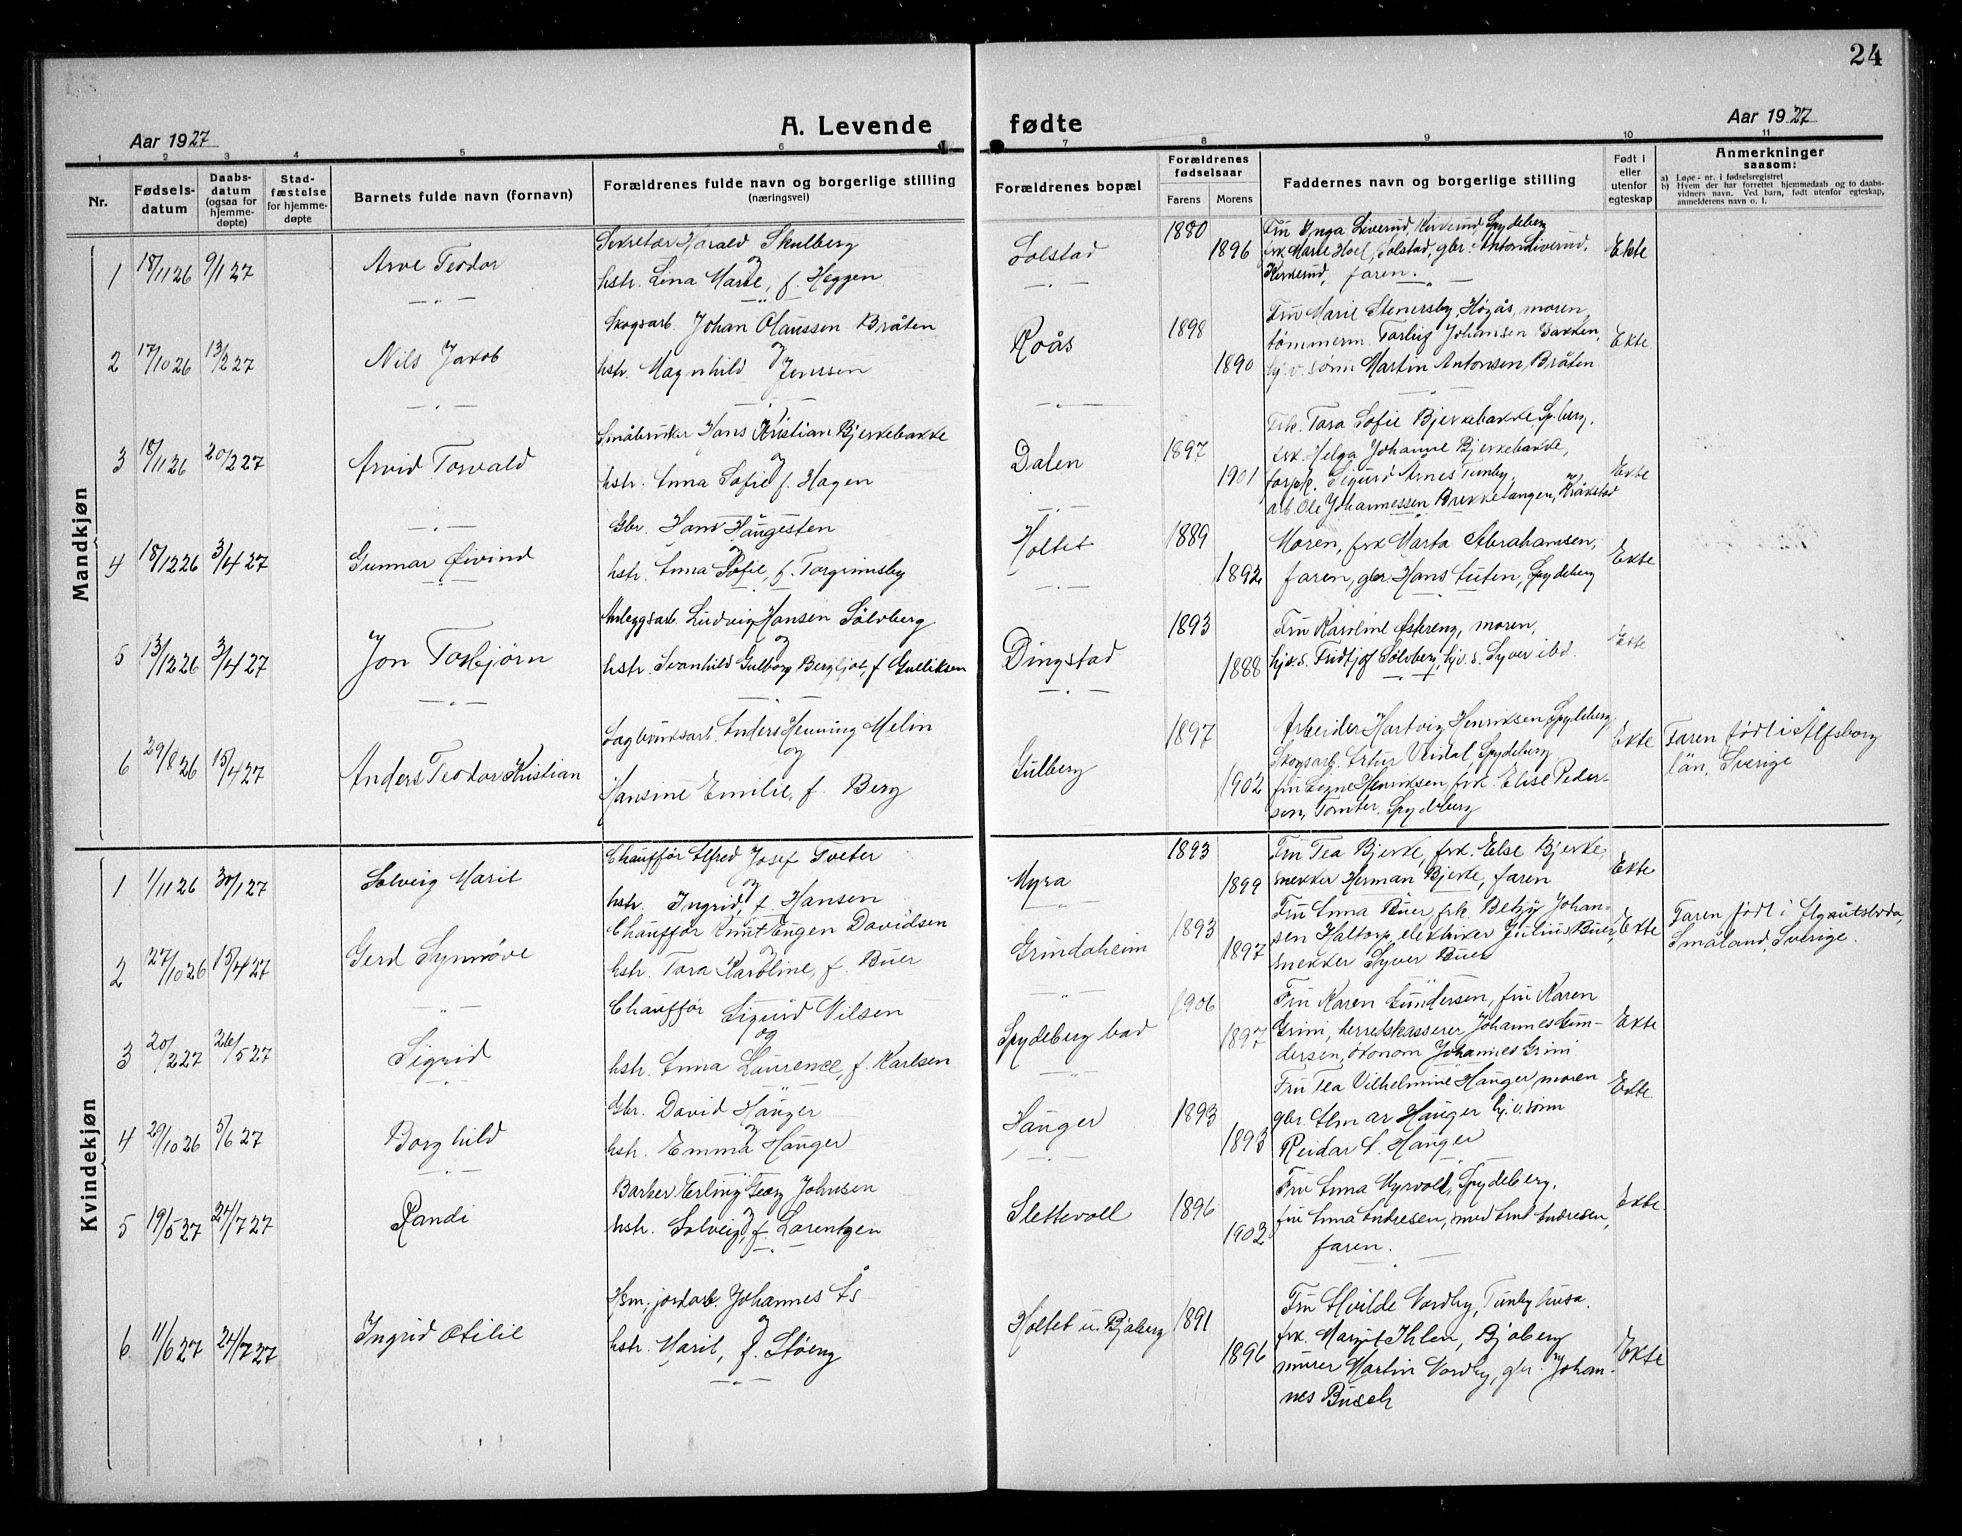 24
Aar 1927
A. Levende
fødte
Aar 1927
1 2 3 4 5 6 7 8 9 10 11
Nr.
Fødsels-
datum
Daabs-
datum
(ogsaa for
hjemme-
døpte)
Stad-
fæstelse
for hjemme-
døpte
Barnets fulde navn (fornavn)
Forældrenes fulde navn og borgerlige stilling
(næringsvei)
Forældrenes bopæl
Forældrenes
fødselsaar
Farens
Morens
Faddernes navn og borgerlige stilling
Født i
eller
utenfor
egteskap
Anmerkninger
saasom:
a) Løpe-nr. i fødselsregistret
b) Hvem der har forrettet hjemmedaab og to daabs-
vidners navn. Ved barn, født utenfor egteskap,
anmelderens navn o. l.
Mandkjøn
1 18/11 26 9/1 27 Arve Teodor
Sekretær Harald Skulberg
og
hstr. Lina Marie, f. Heggen
Solstad 1880 1896
Fru Inga Liverud, Kirkerud Spydeberg
frk. Marie Hoel, Solstad, gbr. Anton Liverud,
Kirkerud, faren.
Ekte
2 17/10 26 13/2 27 Nils Jakob
Skogsarb. Johan Olaussen Bråten
og
hstr. Magnhild Jenssen
Roås 1898 1890
Fru Marie Stenersby, Høgås, moren,
tømmerm. Torleiv Johansen Bakken,
hj.v. sønn Martin Antonsen Bråten
Ekte
3 18/11 26 20/2 27 Arvid Torvald
Småbruker Hans Kristian Bjerkebakke
og
hstr. Anna Sofie f. Hagen
Dalen 1897 1901
Frk. Tora Sofie Bjerkebakke Sp.berg,
frk. Helga Johanne Bjerkebakke,
forpp. Sigurd Arnes Tunby,
arb. Ole Johannessen Brekketangen, Kråkstad
Ekte
4 18/12 26 3/4 27 Gunnar Øivind
Gbr. Hans Haugesten
og
hstr. Anna Sofie, f. Torgrimsby
Holtet 1889 1892
Moren, frk Marta Abrahamsen,
faren, gbr. Hans Luten, Spydeberg
Ekte
5 13/12 26 3/4 27 Jon Torbjørn
Anleggsarb. Ludvig Hansen Sølvberg
og
hstr. Svanhild Gulborg Bergljot, f. Gulliksen
Dingstad 1893 1888
Fru Karoline Askreng, moren,
hjv.s. Fridtjof Sølvberg, hjv. s. Syver ibd.
Ekte
6 29/8 26 15/4 27 Anders Teodor Kristian
Sagbruksarb. Anders Henning Melin
og
Hansine Emilie, f. Berg
Gulberg 1897 1902
Arbeider Hartvig Henriksen Spydeberg,
Skogsarb. Artur Veidal, Spydeberg
fru Signe Henriksen, frk. Elise Peder-
sen, Tomter, Spydeberg
Ekte
Faren født i Älfsborg
län, Sverige
Kvindekjøn
1 1/11 26 30/1 27 Solveig Marit
Chauffør Alfred Josef Tveter
og
hstr. Ingrid, f. Hansen
Myra 1893 1899
Fru Tea Bjerke, frk. Else Bjerke,
snekker Herman Bjerke, faren
Ekte
2 27/10 26 15/4 27 Gerd Synnøve
Chauffør Knut Eugen Davidsen
og
hstr. Tora Karoline, f. Buer
Grindaheim 1893 1897
Fru Anna Buer, frk. Betzy Johan-
sen Haltorp, elektriker Julius Buer,
snekker Syver Buer
Ekte
Faren født i Älgutsboda,
Småland, Sverige.
3 20/2 27 26/5 27 Sigrid
Chauffør Sigurd Nilsen
og
hstr. Anna Laurence, f. Karlsen
Spydeberg bad 1906 1897
Fru Karen Gundersen, fru Karen
Grim, herredskasserer Johannes Gun-
dersen, økonom Johannes Grim
Ekte
4 29/10 26 5/6 27 Borghild
Gbr. David Hauger
og
hstr. Emma Hauger
Hauger 1893 1893
Fru Tea Vilhelmine Hauger, moren
gbr. Almar Hauger hj.v. sønn
Reidar A. Hauger
Ekte
5 19/5 27 24/7 27 Randi
Barber Erling Georg Johnsen
hstr. Solveig, f. Lorentzen
Slettevoll 1896 1902
Fru Anna Myrvold, Spydeberg,
fru Anna Andresen, Arnt Andresen,
faren.
Ekte
6 11/6 27 24/7 27 Ingrid Otilie
Hsm., jordarb. Johannes Ås
og
hstr. Marit, f. Støeng
Holtet u. Bjøberg 1891 1896
Fru Alvilde Nordby, Tunbyhusa.
frk. Margit Ihlen, Bjøberg
murer Martin Nordby, gbr. Johan-
nes Busch
Ekte